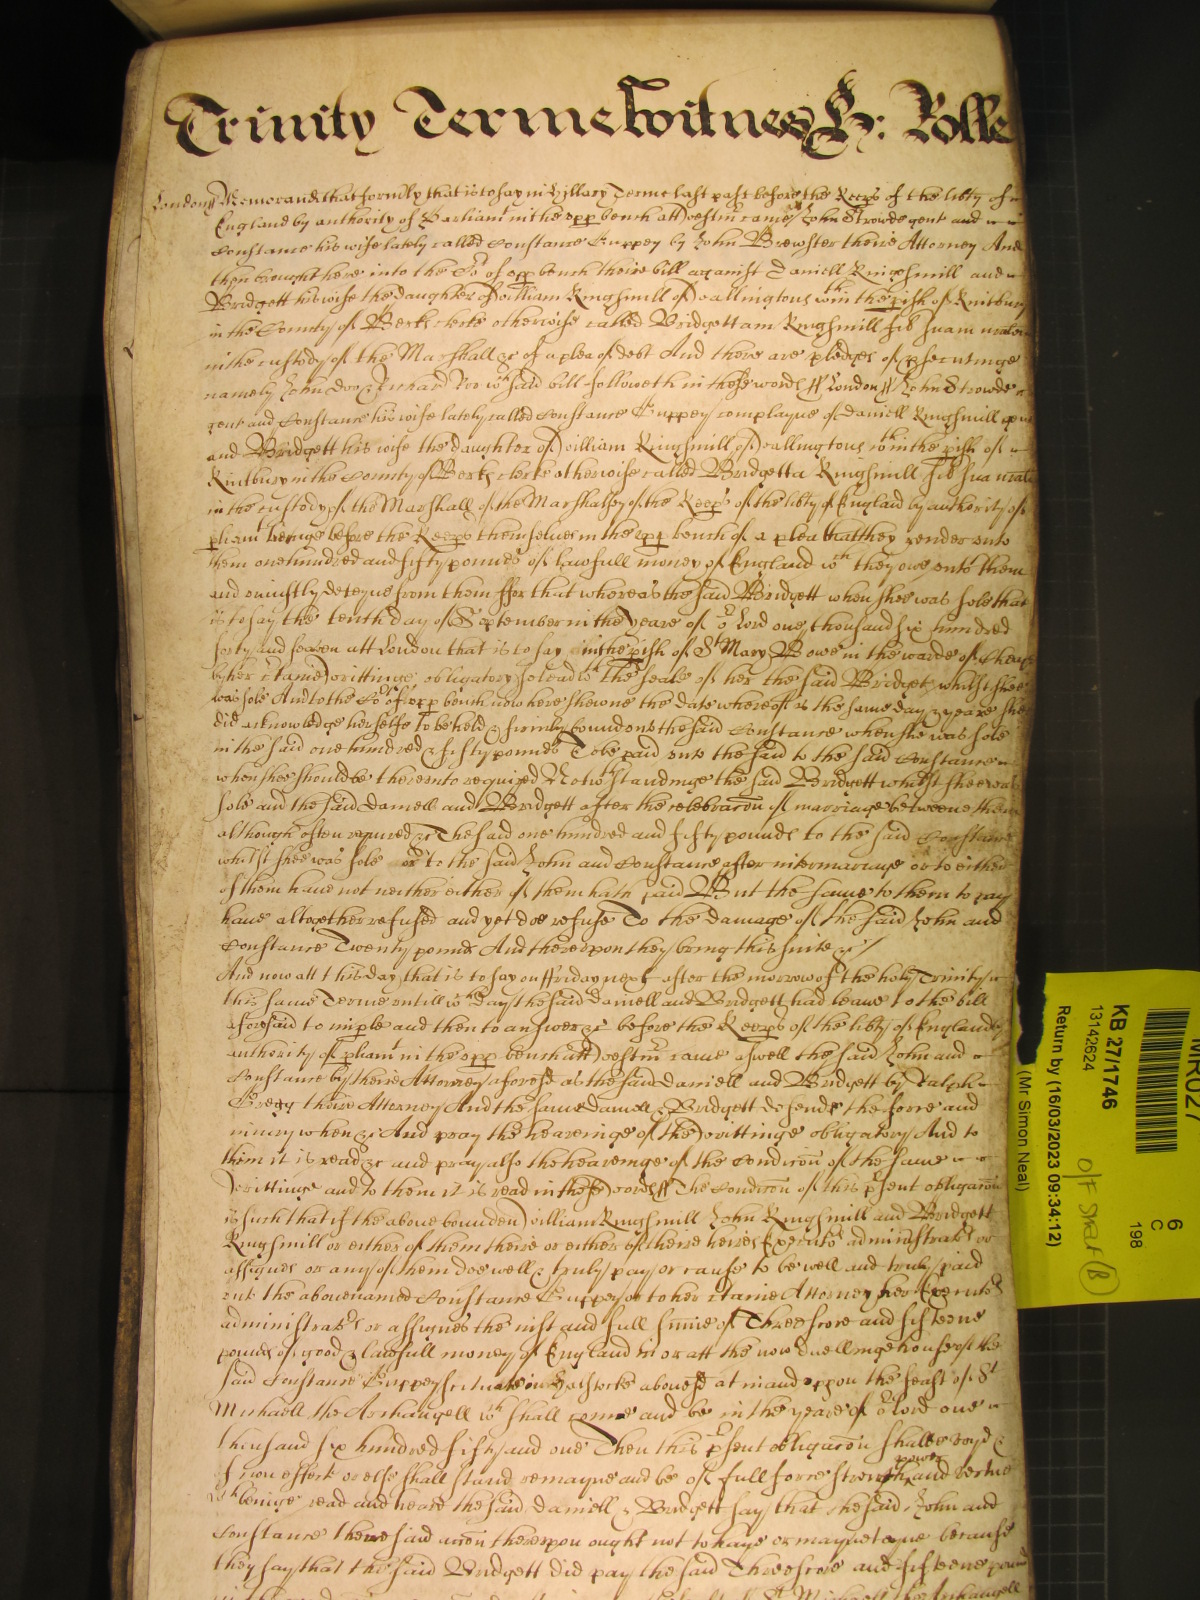 Trinity Terme Witness H: Rolle
London// Memorand that formerly that is to say in Hillary Terme last past before the Keeps of the libty of
England by authority of Parliamt in the upp bench att Westmr came John Strowde gent and
Constance his wife lately called Constance Guppey by John Brewster theire Attorney And
then brought here into the Co't of upp bench theire bill against Daniell Kingsmill and
Bridgett his wife the daughter of William Kingsmill of Wallingtons wthin the pish of Kintbury
in the County of Berks clerke otherwise called Bridgettam Kingsmill
in the custody of the Marshall &c of a plea of debt And there are pledges of psecutinge
namely John Doo & Richard Roo wch said bill followeth in these words // London // John Strowde
gent and Constance his wife lately called Constance Guppey complayne of Daniell Kingsmill gent
and Bridgett his wife the daughter of William Kingsmill of Wallingtons wthin the pish of
Kintbury in the County of Berks clerke otherwise called Bridgetta Kingsmill
in the custody of the Marshall of the Marshalsey of the Keeps of the libty of England by authority of
pliamt beinge before the Keeps themselves in the upp bench of a plea that they render unto
them one hundred and fifty pounds of lawfull money of England wch they owe unto them
and uniustly deteyne from them ffor that whereas the said Bridgett when shee was sole that
is to say the tenth day of September in the yeare of or Lord one thousand six hundred
forty and seaven att London that is to say in the pish of St Mary Bowe in the warde of Cheap
by her ctaine writtinge obligatory sealed wth the seale of her the said Bridget whilst shee
was sole And to the Cot of upp bench now here shewne the date whereof is the same day & yeare she
did acknowledge herselfe To be held & firmly bound unto the said Constance when she was sole
in the said one hundred & fifty pounds To be paid unto the said to the said Constance
when shee should be thereunto required Notwthstandinge the said Bridgett whilst shee was
sole and the said Daniell and Bridgett after the celebracon of marriage betweene them
although often required &c The said one hundred and fifty pounds to the said Constance
whilst shee was sole or to the said John and Constance after intermariage or to either
of them have not neither either of them hath paid But the same to them to pay
have altogether refused and yet doe refuse To the damage of the said John and
Constance Twenty pounds And thereupon they bring this suite &c /
And now att this day that is to say on ffriday next after the morrow of the holy Trinity
this same Terme untill wch day the said Daniell and Bridgett had leave to the bill
aforesaid to imple and then to answer &c before the Keeps of the libty of England by
authority of pliamt in the upp bench att Westmr came aswell the said John and
Constance by theire Attorney aforesd as the said Daniell and Bridgett by Ralph
Gregg theire Attorney And the same Daniell & Bridgett defends the force and
iniury when &c And pray the heareinge of the writtinge obligatory And to
them it is read &c and pray also the heareinge of the Condicon of the same
writtinge and to them it is read in these words // The Condicon of this psent obligacon
is such that if the above bounden William Kingsmill John Kingsmill and Bridgett
Kingsmill or either of them theire or either of theire heires Executors administrators or
assignes or any of them doe well & truly pay or cause to be well and truly paid
unto the abovenamed Constance Guppey or to her ctaine Attorney her Executors
administrators or assignes the iust and full summe of Threescore and fifteene
pounds of good & lawfull money of England in or att the now dwellinge house of the
said Constance Guppey scituate in abovesd at in and uppon the feast of St
Michaell the Archangell wch shall come and be in the yeare of or Lord one
thousand six hundred fifty and one Then this psent obligacon shalbe voyd &
of non effect or else shall stand remayne and be of full force strength power and vertue
wch beinge read and heard the said Daniell & Bridgett say that the said John and
Constance theire said accon thereupon ought not to have or mayneteyne because
they say that the said Bridgett did pay the said Threescore and fifteene pounds
St Michaell the Archangell
MR027
KB 27/1746
13142624
Return by (16/03/2023 09:34:12)
(Mr Simon Neal)
6
C
198
O/F Shelf (B)